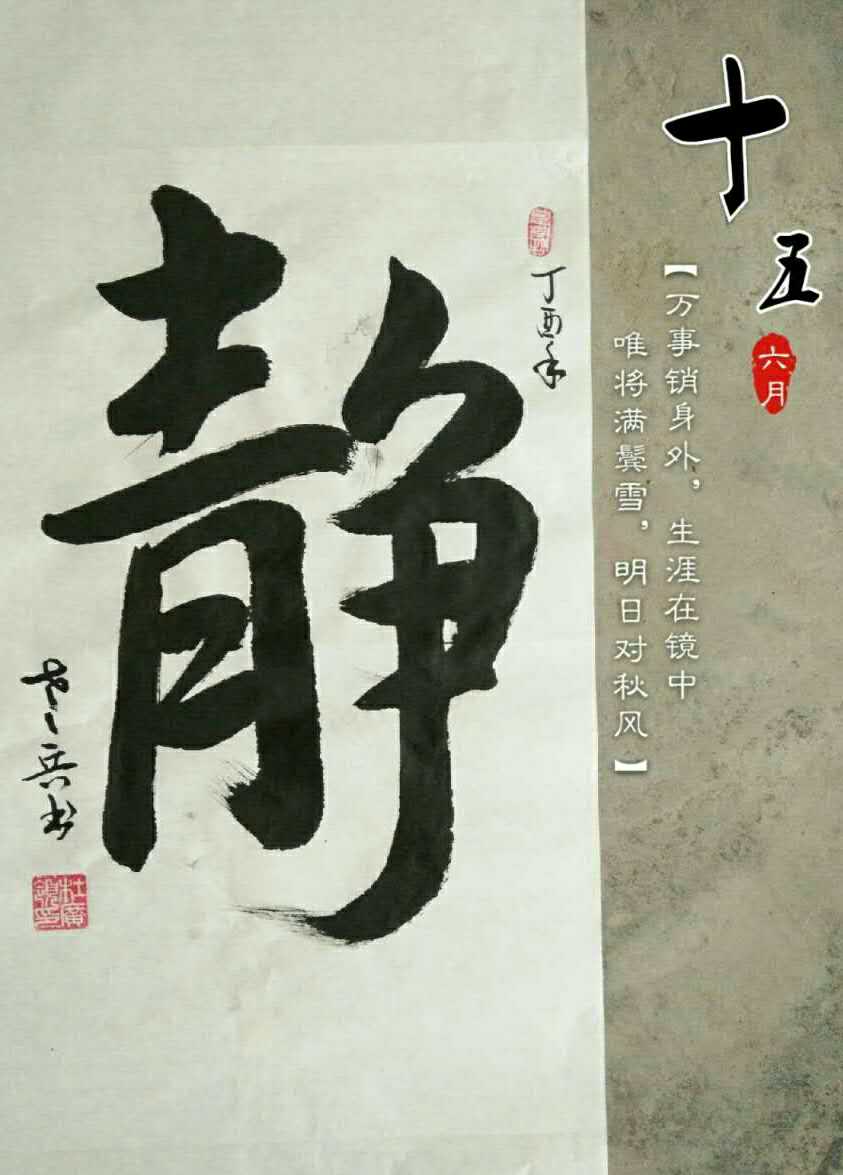 十五
六月
【万事销身外，生涯在镜中
唯将满鬓雪，明日对秋风】
丁酉年
静
老兵书